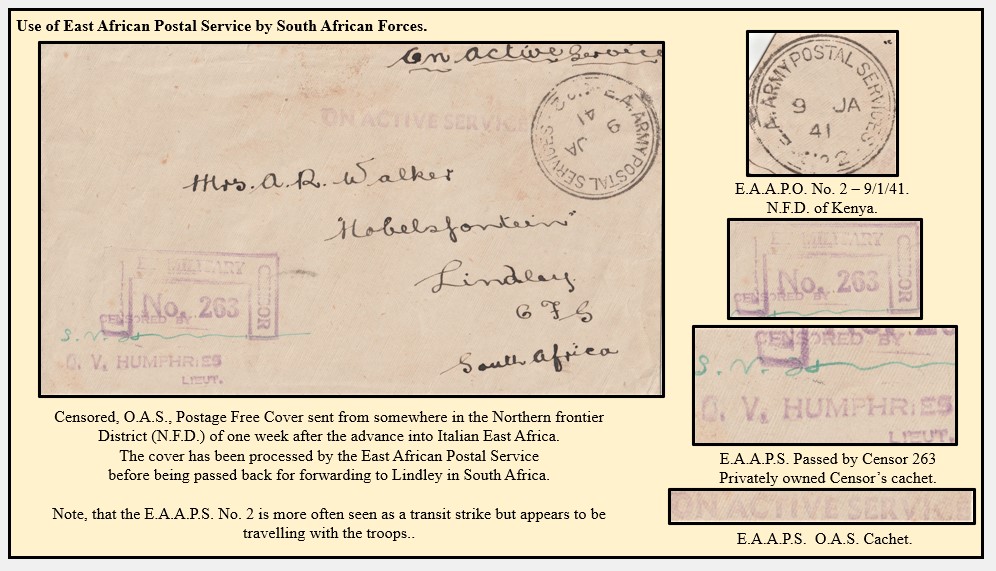 Use of East African Postal Service by South African Forces.
On Active Service
ON ACTIVE SERVICE
E.A. ARMY POSTAL SERVICES
9 JA
41
Mrs. A. R. Walker
Lindley
O F S
South Africa
MILITARY
No. 263
CENSOR
CENSORED BY
V. HUMPHRIES
LIEUT.
Censored, O.A.S., Postage Free Cover sent from somewhere in the Northern frontier
District (N.F.D.) of one week after the advance into Italian East Africa.
The cover has been processed by the East African Postal Service
before being passed back for forwarding to Lindley in South Africa.
Note, that the E.A.A.P.S. No. 2 is more often seen as a transit strike but appears to be
travelling with the troops..
E.A. ARMY POSTAL SERVICES
9 JA
41
2
E.A.A.P.O. No. 2 – 9/1/41.
N.F.D. of Kenya.
MILITARY
No. 263
CENSORED BY
CENSORED BY
V. HUMPHRIES
LIEUT.
E.A.A.P.S. Passed by Censor 263
Privately owned Censor's cachet.
ON ACTIVE SERVICE
E.A.A.P.S. O.A.S. Cachet.